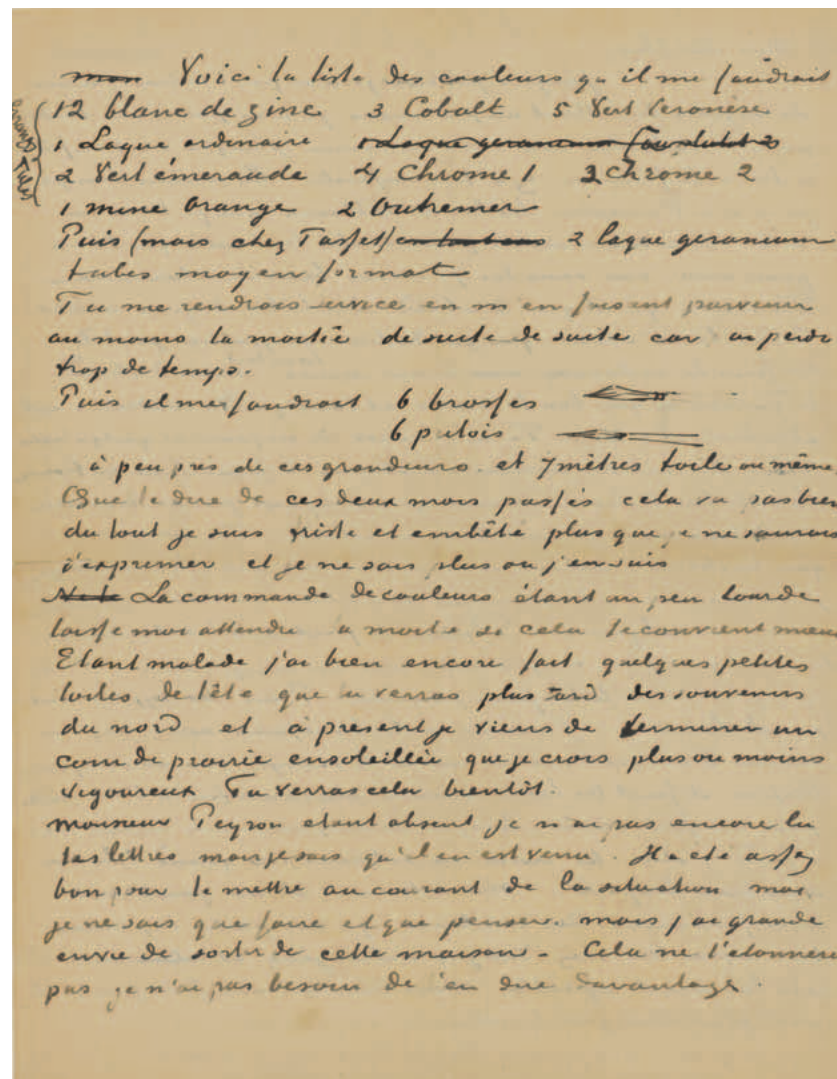 mon Voici la liste des couleurs qu il me faudrait
grands Tubes
12 blanc de zinc 3 Cobalt 5 Vert Veronèse
1 Laque ordinaire 1 Laque geranium
2 Vert émeraude 4 Chrome 1 3 Chrome 2
1 mine orange 2 Outremer
Puis (mais chez Tasset) 2 laque geranium
tubes moyen format
Tu me rendrais service en m en faisant parvenir
au moins la moitié de suite de suite car ai perdu
trop de temps.
Puis il me faudrait 6 brosses
6 putois
à peu près de ces grandeurs. et 7 mètres toile ou même
Que te dire de ces deux mois passés cela va pas bien
du tout je suis triste et embêté plus que je ne saurais
t'exprimer et je ne sais plus où j'en suis
La commande de couleurs étant un peu lourde
laisse moi attendre la moitié si cela te convient mieux
Etant malade j'ai bien encore fait quelques petites
toiles de tête que tu verras plus tard des souvenirs
du nord et à present je viens de terminer un
coin de prairie ensoleillée que je crois plus ou moins
vigoureux Tu verras cela bientôt.
Monsieur Peyron etant absent je n ai pas encore lu
tes lettres mais je sais qu'il en est venu. Il a eté assez
bon pour te mettre au courant de la situation moi
je ne sais que faire et que penser. mais j ai grande
envie de sortir de cette maison - Cela ne t'etonnera
pas je n'ai pas besoin de t'en dire davantage.